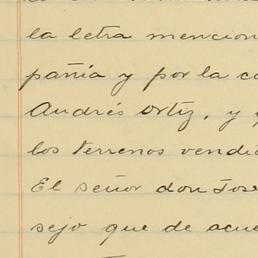 la letra mencion
pañía y por la co
Andrés Ortiz, y
los terrenos vendi
El señor don Jose
sejo que de acue